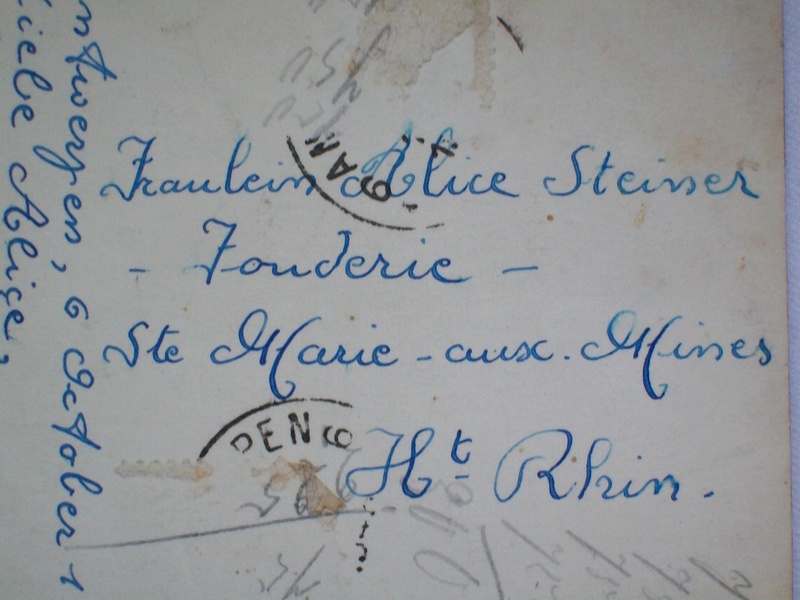 Fraulein Alice Steiner
- Fonderie -
Ste Marie-aux-Mines
Ht Rhin.
Antwerpen, 6 October 1
Liebe Alice,
PEN 6